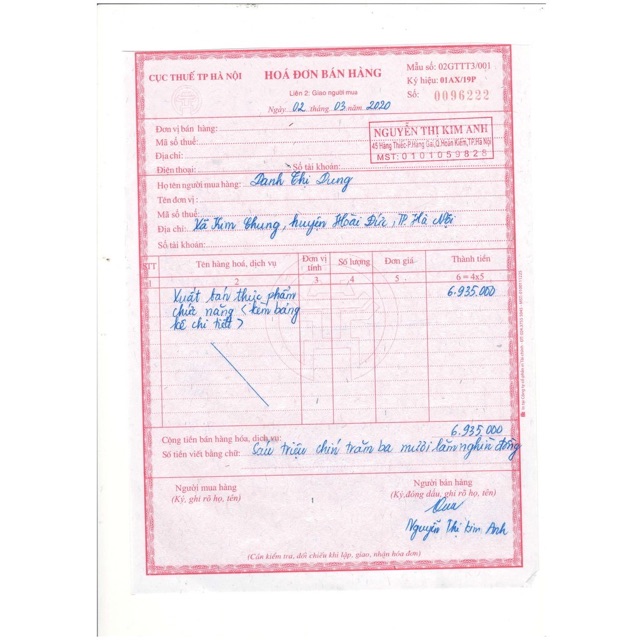 CỤC THUẾ TP HÀ NỘI
HOÁ ĐƠN BÁN HÀNG
Mẫu số: 02GTTT3/001
Ký hiệu: 01AX/19P
Liên 2: Giao người mua
Số: 0096222
Ngày 02 tháng 03 năm 2020
Đơn vị bán hàng:
NGUYỄN THỊ KIM ANH
Mã số thuế
45 Hàng Thiếc-P.Hàng Gai,Q.Hoàn Kiếm,TP.Hà Nội
Địa chỉ:
MST: 0101059825
Điện thoại: Số tài khoản:
Họ tên người mua hàng: Danh Thị Dung
Tên đơn vị:
Mã số thuế
Địa chỉ: Xã Kim Chung, huyện Hoài Đức, TP. Hà Nội
Số tài khoản:
STT Tên hàng hoá, dịch vụ Đơn vị tính Số lượng Đơn giá Thành tiền
1 2 3 4 5 6 = 4x5
Xuất bán thực phẩm 6.935.000
chức năng < kèm bảng
kê chi tiết >
6.935.000
Cộng tiền bán hàng hóa, dịch vụ:
Số tiền viết bằng chữ: Sáu triệu chín trăm ba mươi lăm nghìn đồng
Người mua hàng
(Ký, ghi rõ họ, tên)
Người bán hàng
(Ký,đóng dấu, ghi rõ họ, tên)
Nguyễn Thị Kim Anh
(Cần kiểm tra, đối chiếu khi lập, giao, nhận hóa đơn)